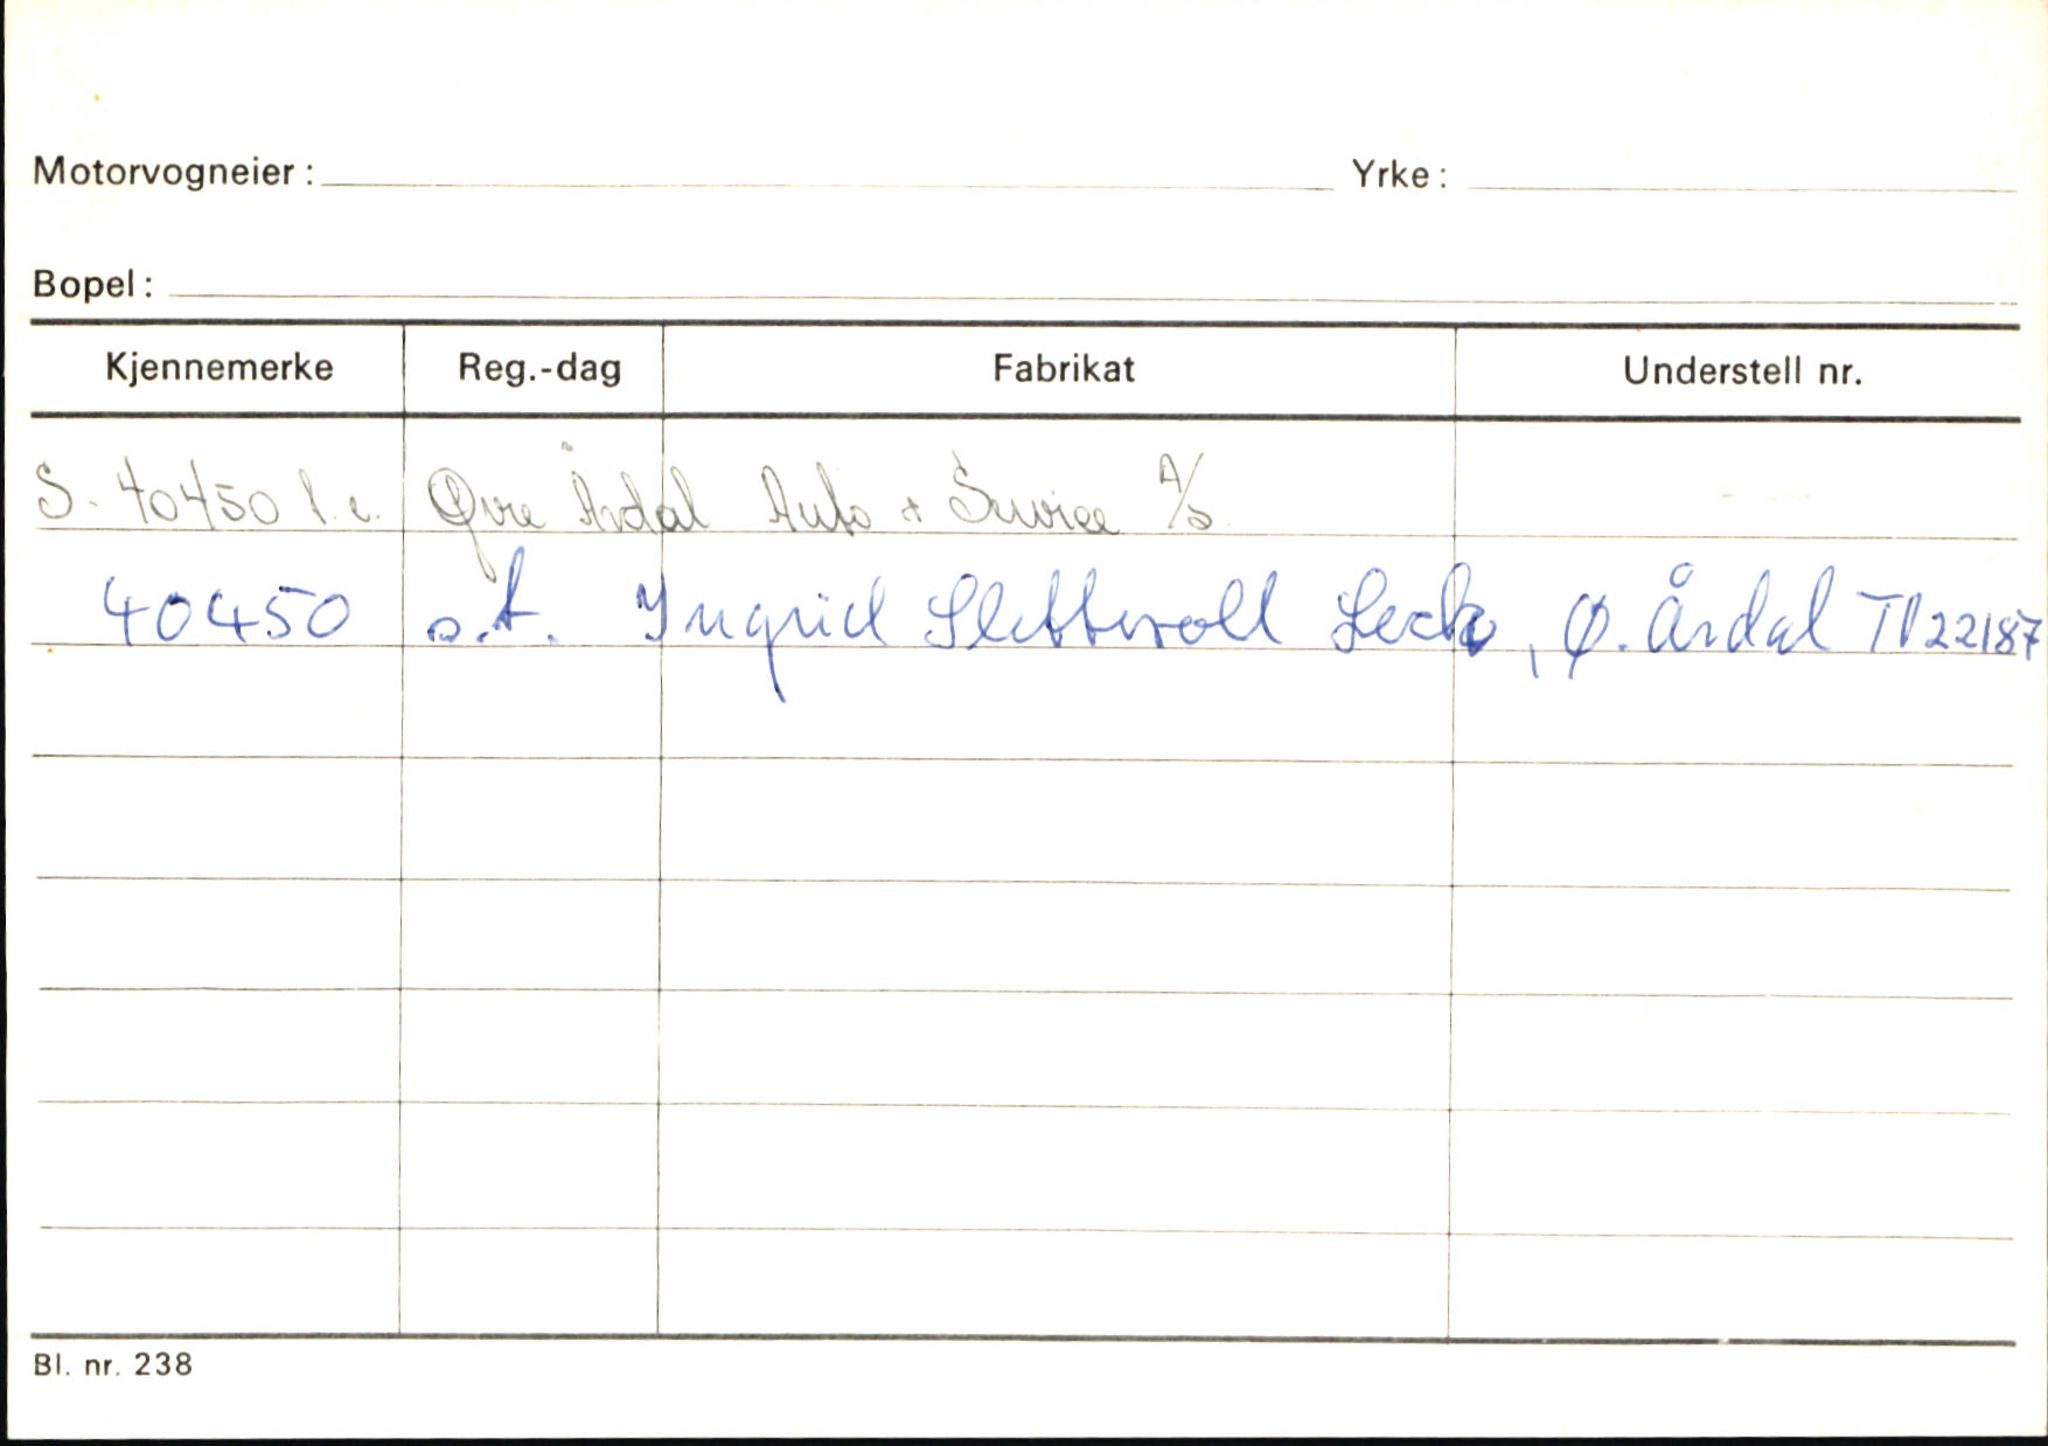 Motorvogneier: Yrke:
Bopel:
Kjennemerke Reg.-dag Fabrikat Understell nr.
S-40450 Øvre Årdal Auto + Service A/S
40450 o.t. Ingrid Slettvoll, Ø. Årdal 22187
Bl. nr. 238